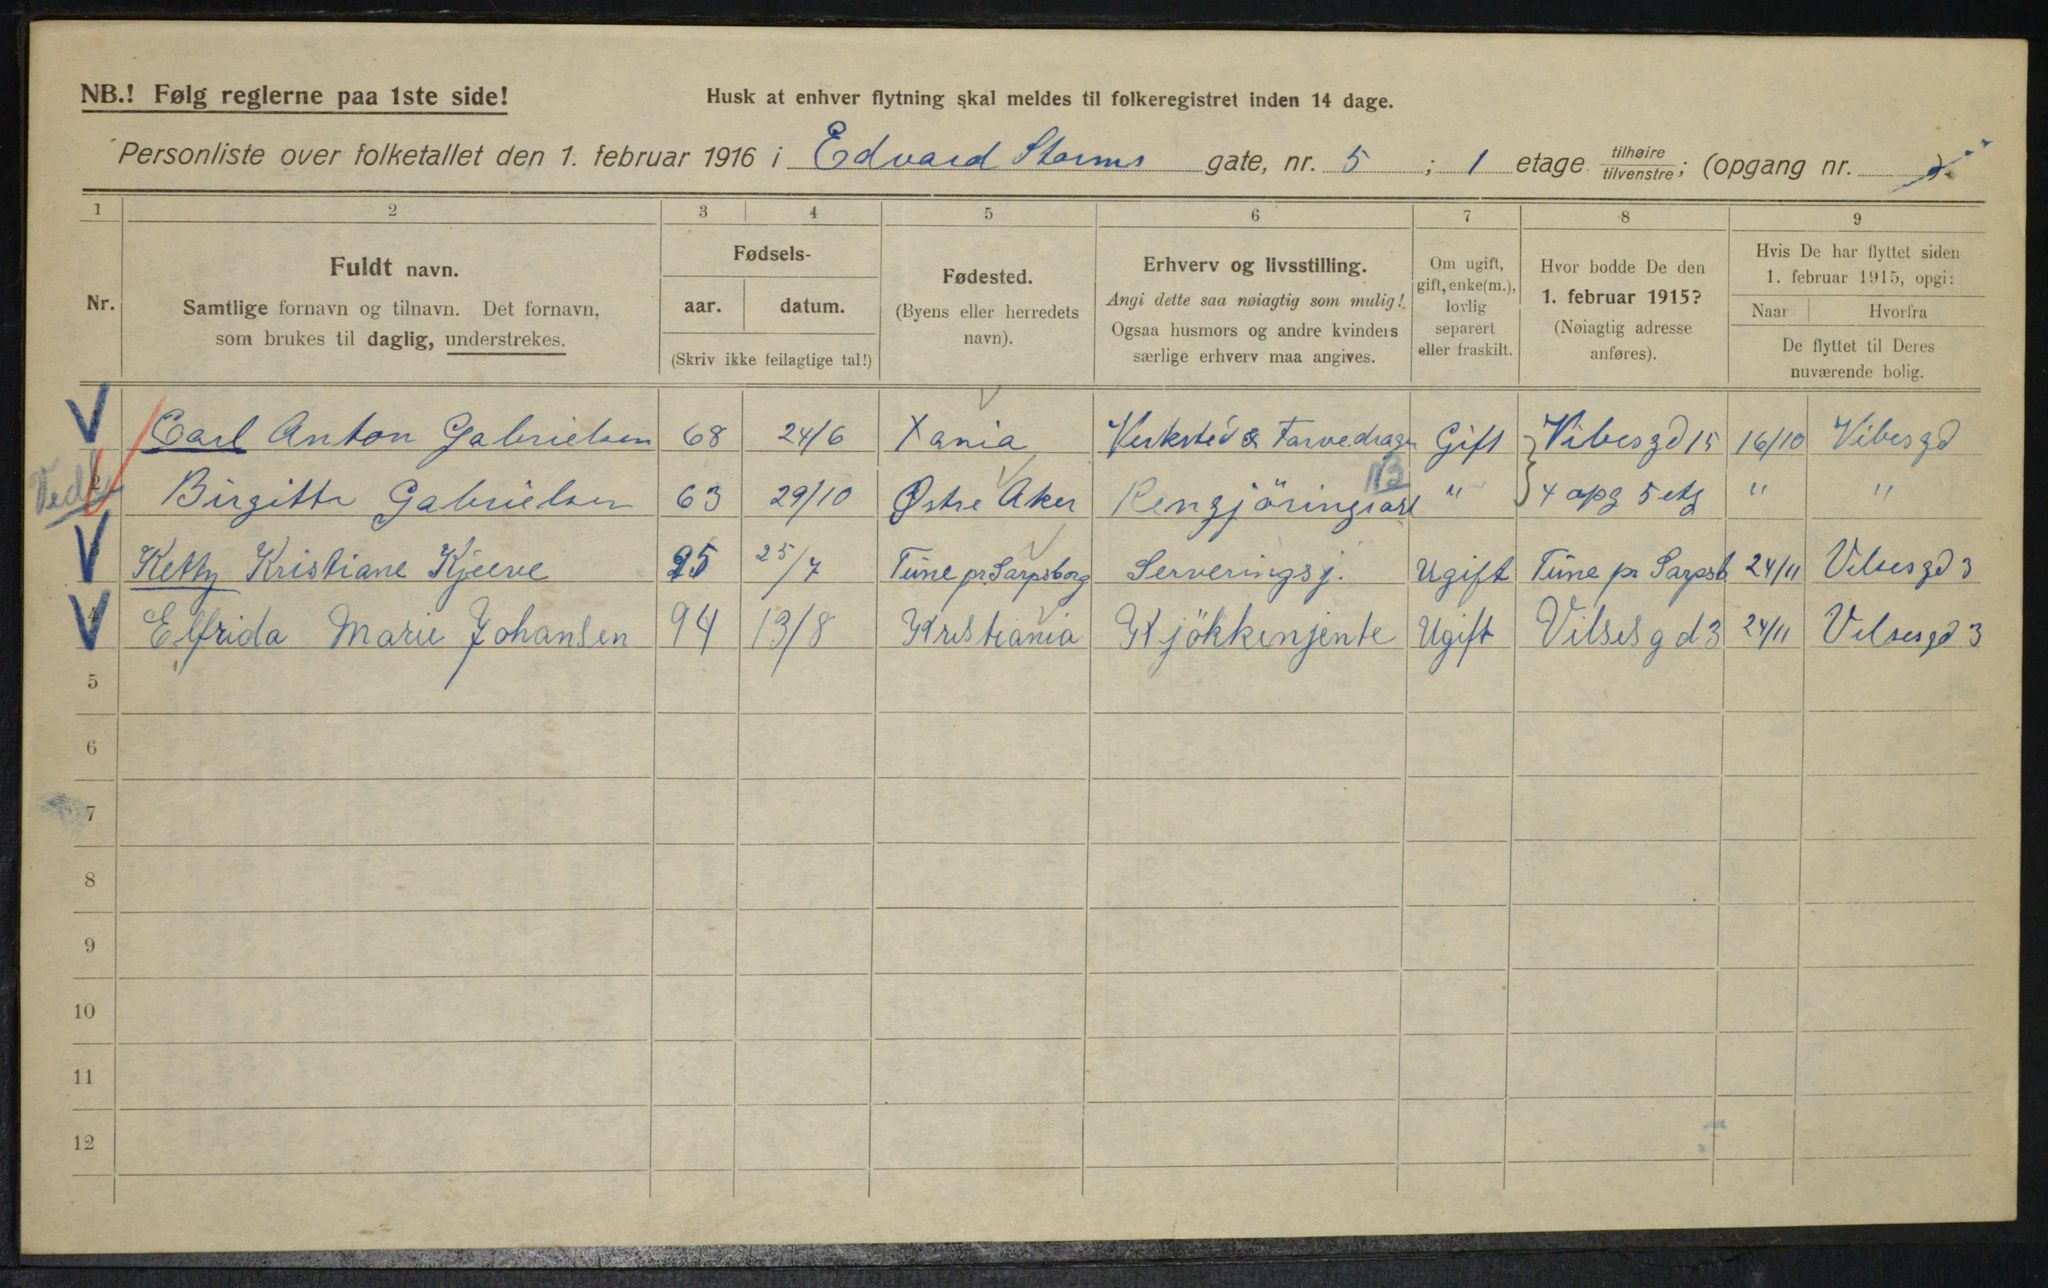 NB.! Følg reglerne paa 1ste side!
Husk at enhver flytning skal meldes til folkeregistret inden 14 dage.
Personliste over folketallet den 1. februar 1916 i Edvard Storms gate, nr. 5 ; 1 etage tilhøire tilvenstre; (opgang nr. ).
1 2 3 4 5 6 7 8 9
Nr.
Fuldt navn.
Samtlige fornavn og tilnavn. Det fornavn,
som brukes til daglig, understrekes.
Fødsels-
aar. datum.
(Skriv ikke feilagtige tal!)
Fødested.
(Byens eller herredets
navn).
Erhverv og livsstilling.
Angi dette saa nøiagtig som mulig!
Ogsaa husmors og andre kvinders
særlige erhverv maa angives.
Om ugift,
gift, enke(m.),
lovlig
separert
eller fraskilt.
Hvor bodde De den
1. februar 1915?
(Nøiagtig adresse
anføres).
Hvis De har flyttet siden
1. februar 1915, opgi:
Naar Hvorfra
De flyttet til Deres
nuværende bolig.
Carl Anton Gabrielsen 68 24/6 Xania Verksted & Farvedrager Gift Vibesgd 15 16/10 Vibesgd
2 Birgitte Gabrielsen 63 29/10 Østre Aker Rengjöringsart " 4 opg 5 etg " "
Ketty Kristiane Kjeeve 95 25/7 Tune pr. Sarpsborg Serveringsj. Ugift Tune pr Sarpsb 24/11 Vibesgd 3
4 Elfrida Marie Johansen 94 13/8 Kristiania Kjökkenjente Ugift Vibsesgd 3 24/11 Vibesgd 3
5
6
7
8
9
10
11
12